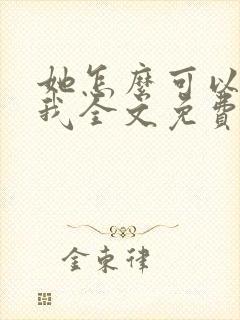 她怎麼可以
我全文免費
金東律